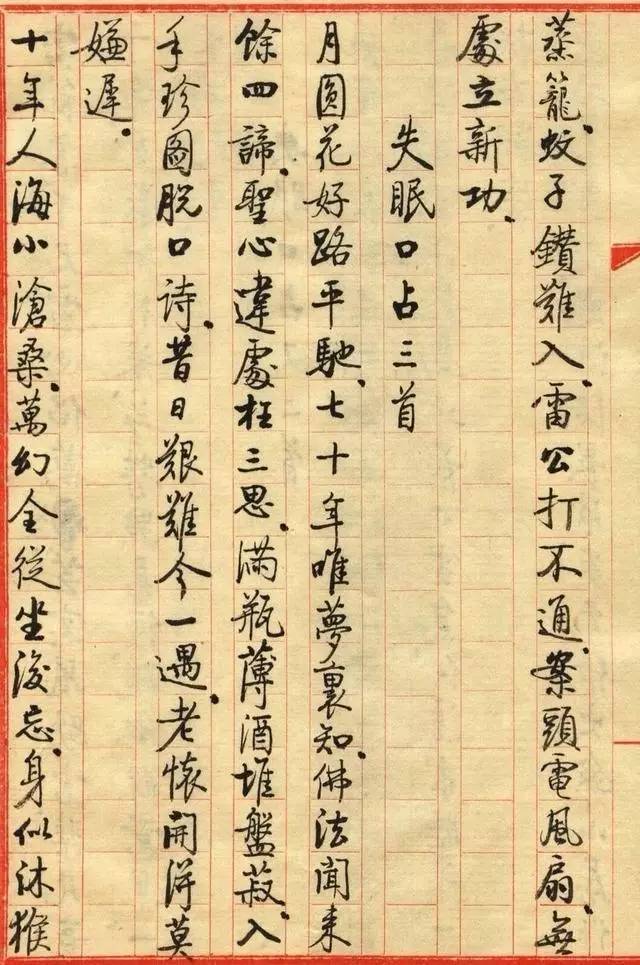 蒸籠、蚊子鑽難入、雷公打不通、案頭電風扇、無
處立新功、
失眠口占三首
月圓花好路平馳、七十年唯夢裏知、佛法聞来
餘四諦、聖心違處枉三思、滿瓶薄酒堆盤菽、入
手珍圖脱口诗、昔日艱難今一遇、老懷開得莫
嫌遲、
十年人海小滄桑、萬幻全從坐後忘、身似沐猴